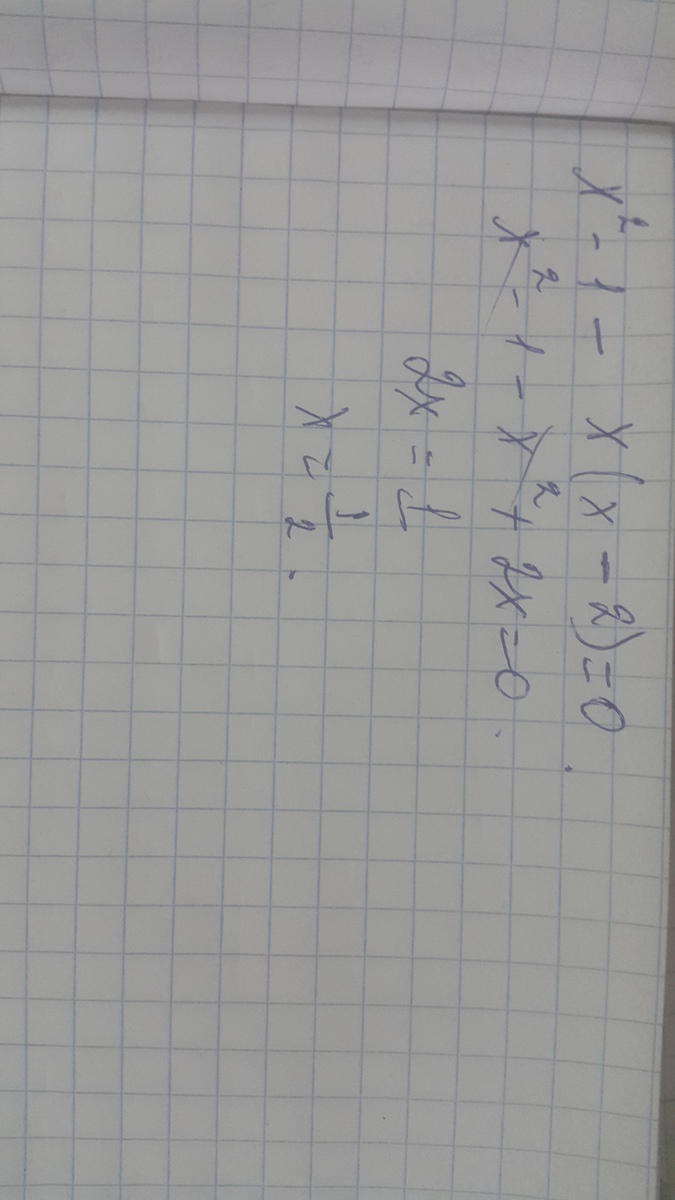 x² - 1 - x(x - 2) = 0.
x² - 1 - x² + 2x = 0.
2x = 1
x = 1/2.